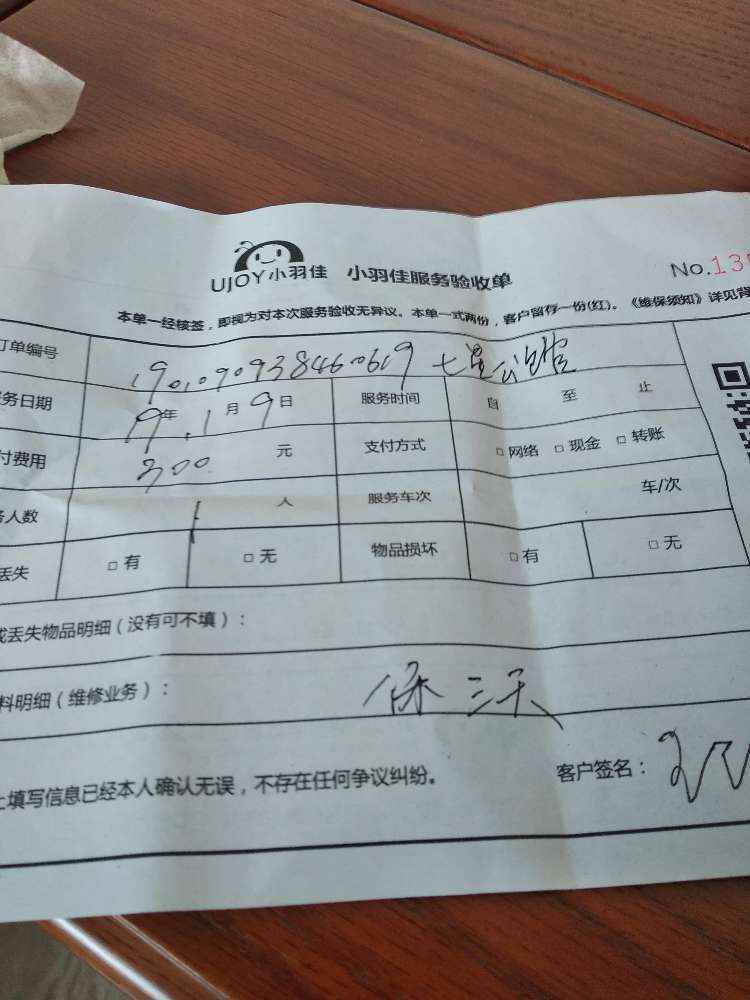 UJOY小羽佳 小羽佳服务验收单 No.13
本单一经核签，即视为对本次服务验收无异议。本单一式两份，客户留存一份(红)。《维保须知》详见背
订单编号 1901090938460619 七星公馆
务日期 19年1月9日 服务时间 自 至 止
付费用 300 元 支付方式 □网络 □现金 □转账
务人数 1 人 服务车次 车/次
丢失 □有 □无 物品损坏 □有 □无
或丢失物品明细（没有可不填）：
料明细（维修业务）： 保三天
上填写信息已经本人确认无误，不存在任何争议纠纷。 客户签名：